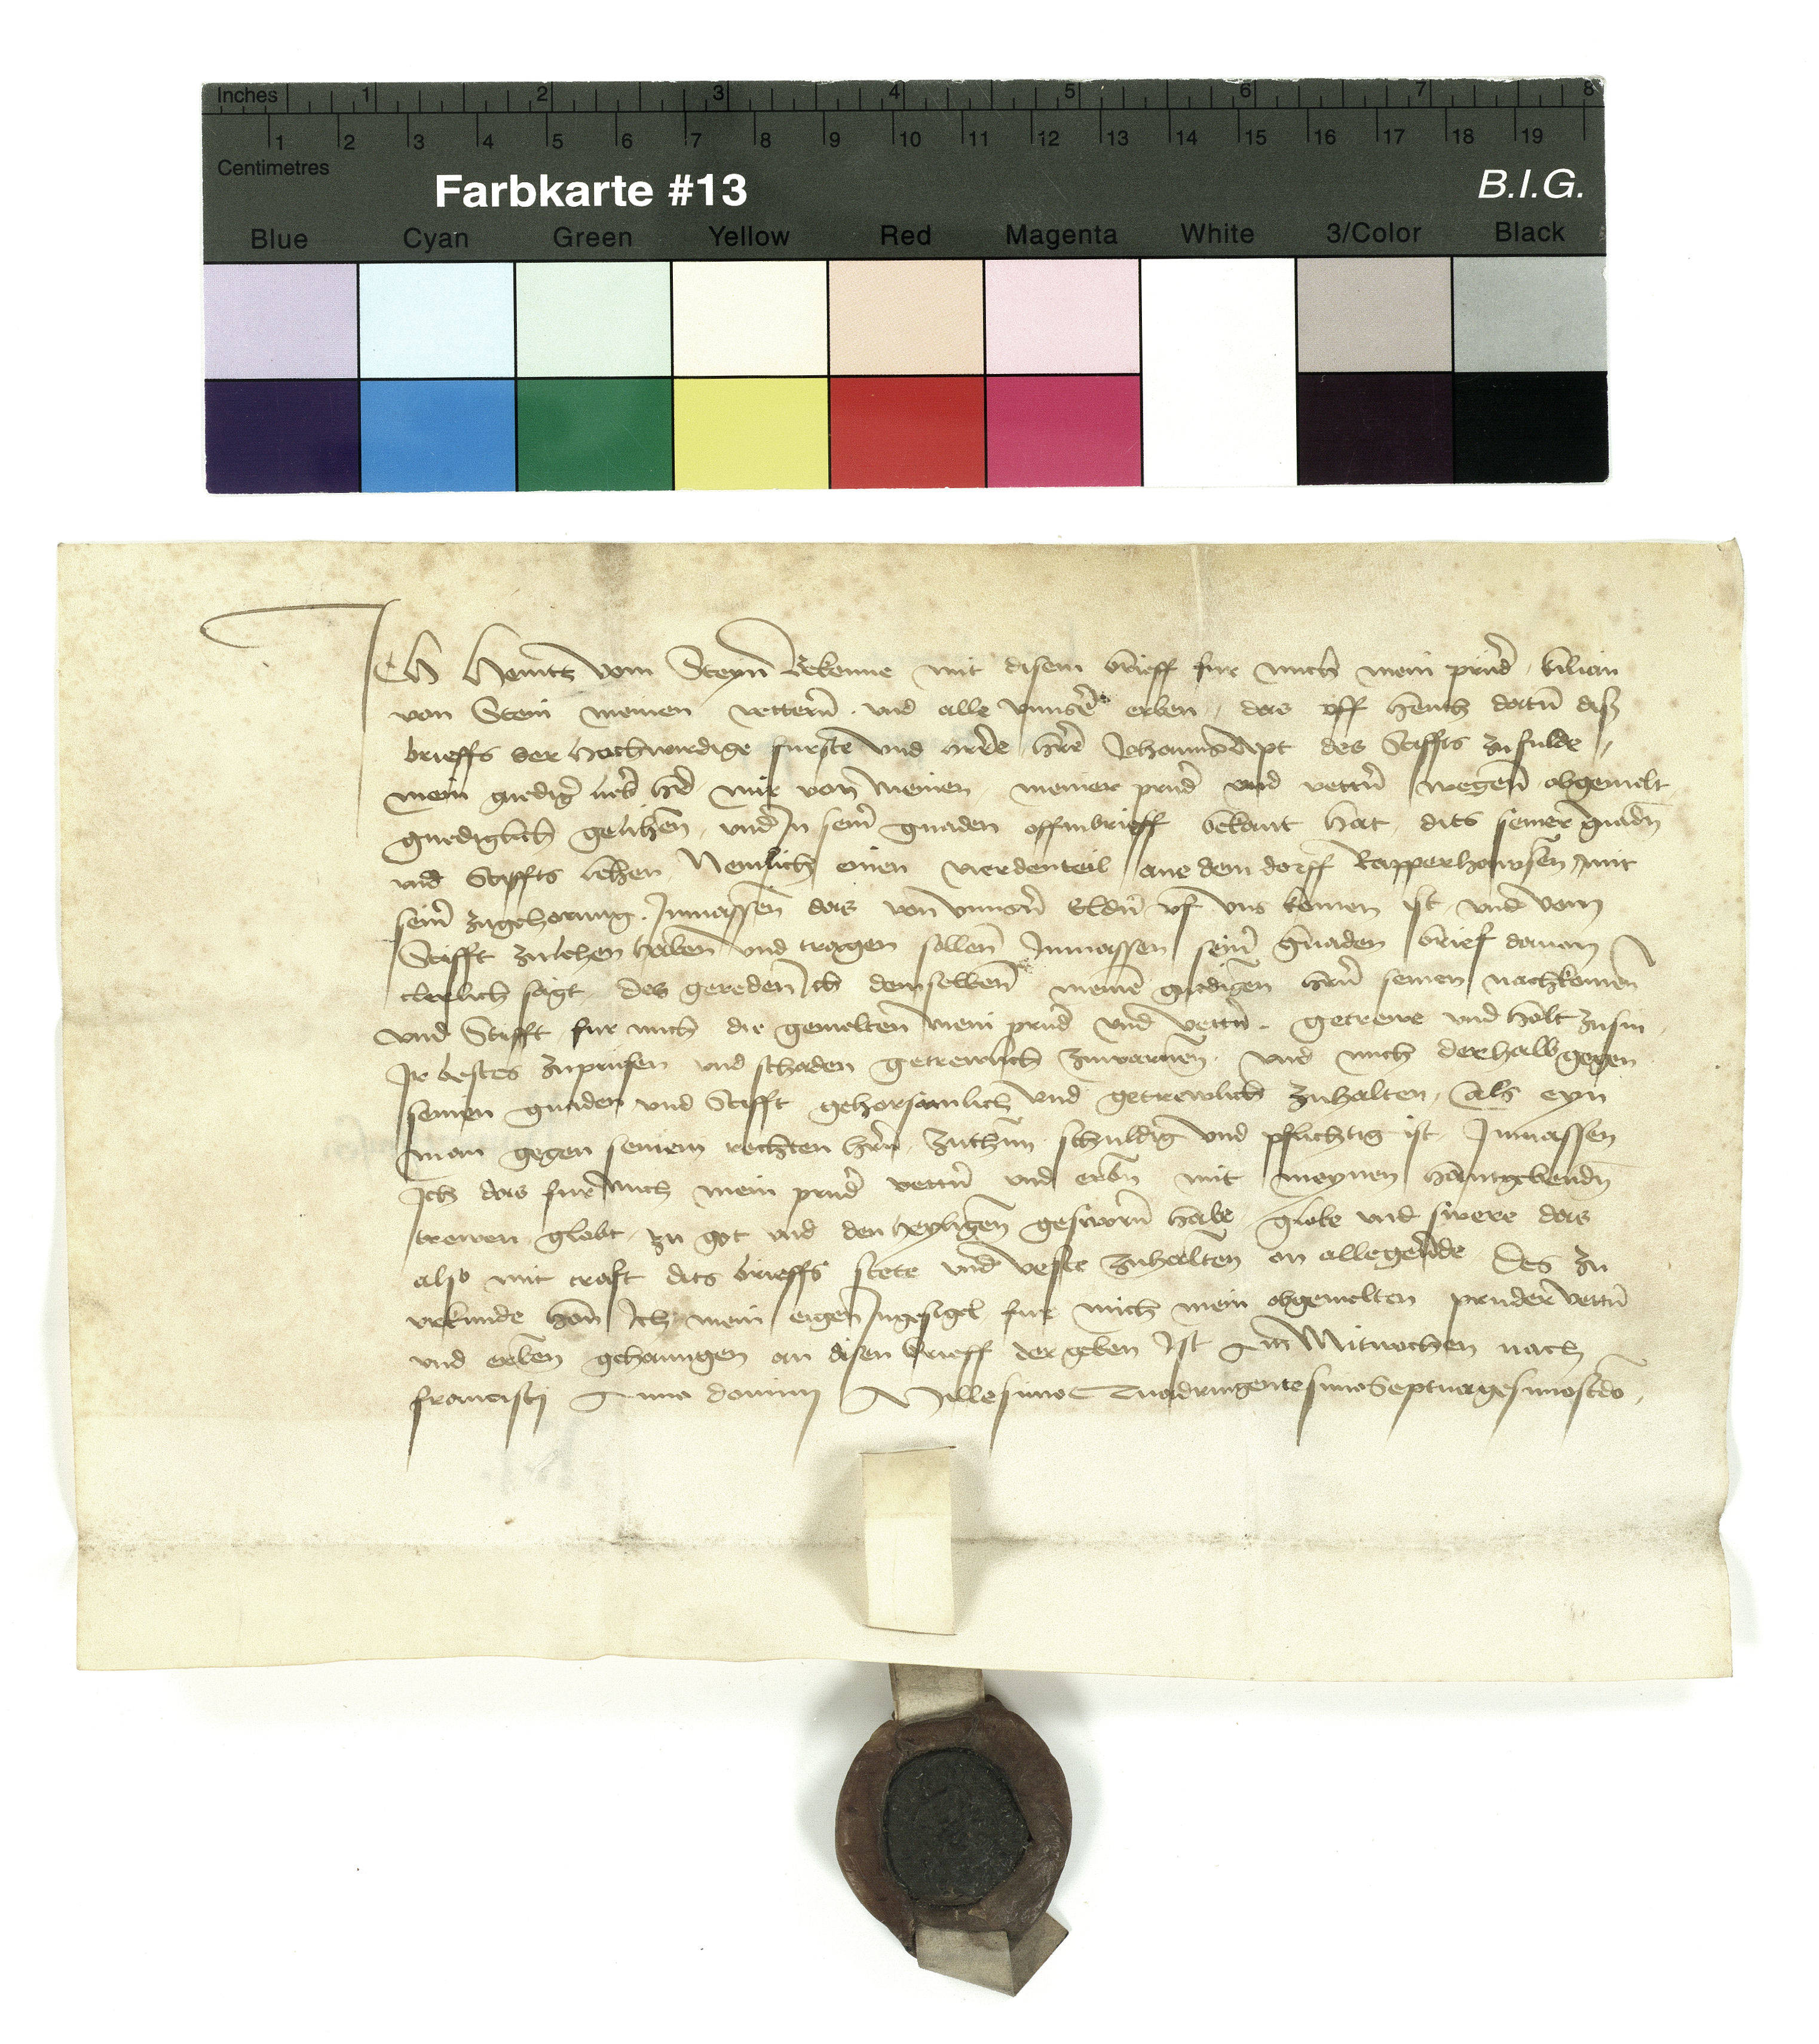 Inches 1 2 3 4 5 6 7 8
1 2 3 4 5 6 7 8 9 10 11 12 13 14 15 16 17 18 19
Centimetres
Farbkarte #13 B.I.G.
Blue Cyan Green Yellow Red Magenta White 3/Color Black
Ich Heintz vom Steyn Bekenne mit disem brieff fur mich mein prud Kilian
von Stein meinen vettern und alle unnser erben, das uff heuth datu diß
brieffs der hochwirdige furste und herre her Johanns Apt des Stiffts zu fulde,
mein gnedig lieb her mir von meinen meiner prud und vettn wegen obgemelt
gnediglich gelihen, und In sein gnaden offinbrieff bekant hat, dits seiner gnadn
und Stiffts lehen Nemlich einen vierdenteil ane dem dorff Rapperhawsen mit
sein zugehorung. Inmassen das von unnsn Eldn uf uns komen ist und vom
Stifft zulehen haben und tragen sollen Inmassen sein gnaden brief davon
clerlich sagt, des gereden Ich demselben meine gnedigen hrn seinen nachkomen
und Stifft fur mich die gemelten mein prud und vettn. getrewe und holt zusin
Ir bestes zuprufen und schaden getrewlich zuwarnen. und mich derhalb gegen
seinen gnaden und Stifft gehorsamlich und getrewlich zuhalten, als eyn
man gegen seinem rechten hrn zuthun schuldig und pflichtig ist, Inmassen
Ich das fur mich mein prud vettn und erbn mit meynen hanntgebendn
trewen globt zu got und den heyligen gesworn habe, globe und swere das
also mit craft dits brieffs stete und veste zuhalten on allegeverde Des zu
urkunde han Ich mein eigen Ingesigel fur mich mein obgemelten pruder vettn
und erben gehanngen an disen brieff der geben Ist Am Mitwochen nach
francisci Anno domini Millesimo Quadringentesimo Septuagesimoscdo,